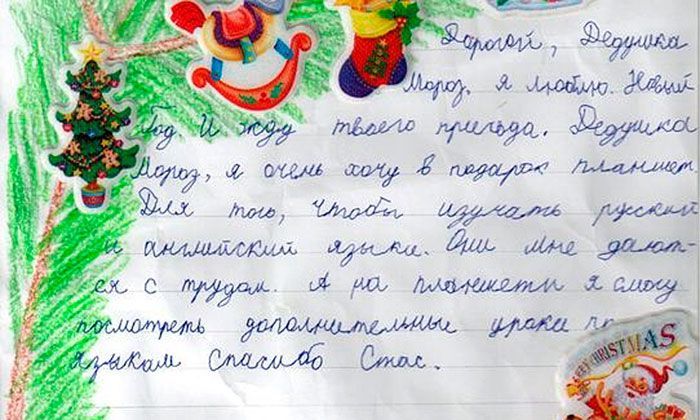 Дорогой, Дедушка
Мороз. я люблю. Новый
Год И жду твоего приезда. Дедушка
Мороз, я очень хочу в подарок планшет
Для того, чтобы изучать русский
и английский языки. Они мне дают
ся с трудом. А на планшети я смогу
посмотреть дополнительные уроки по
языкам спасибо Стас.
MERRY CHRISTMAS